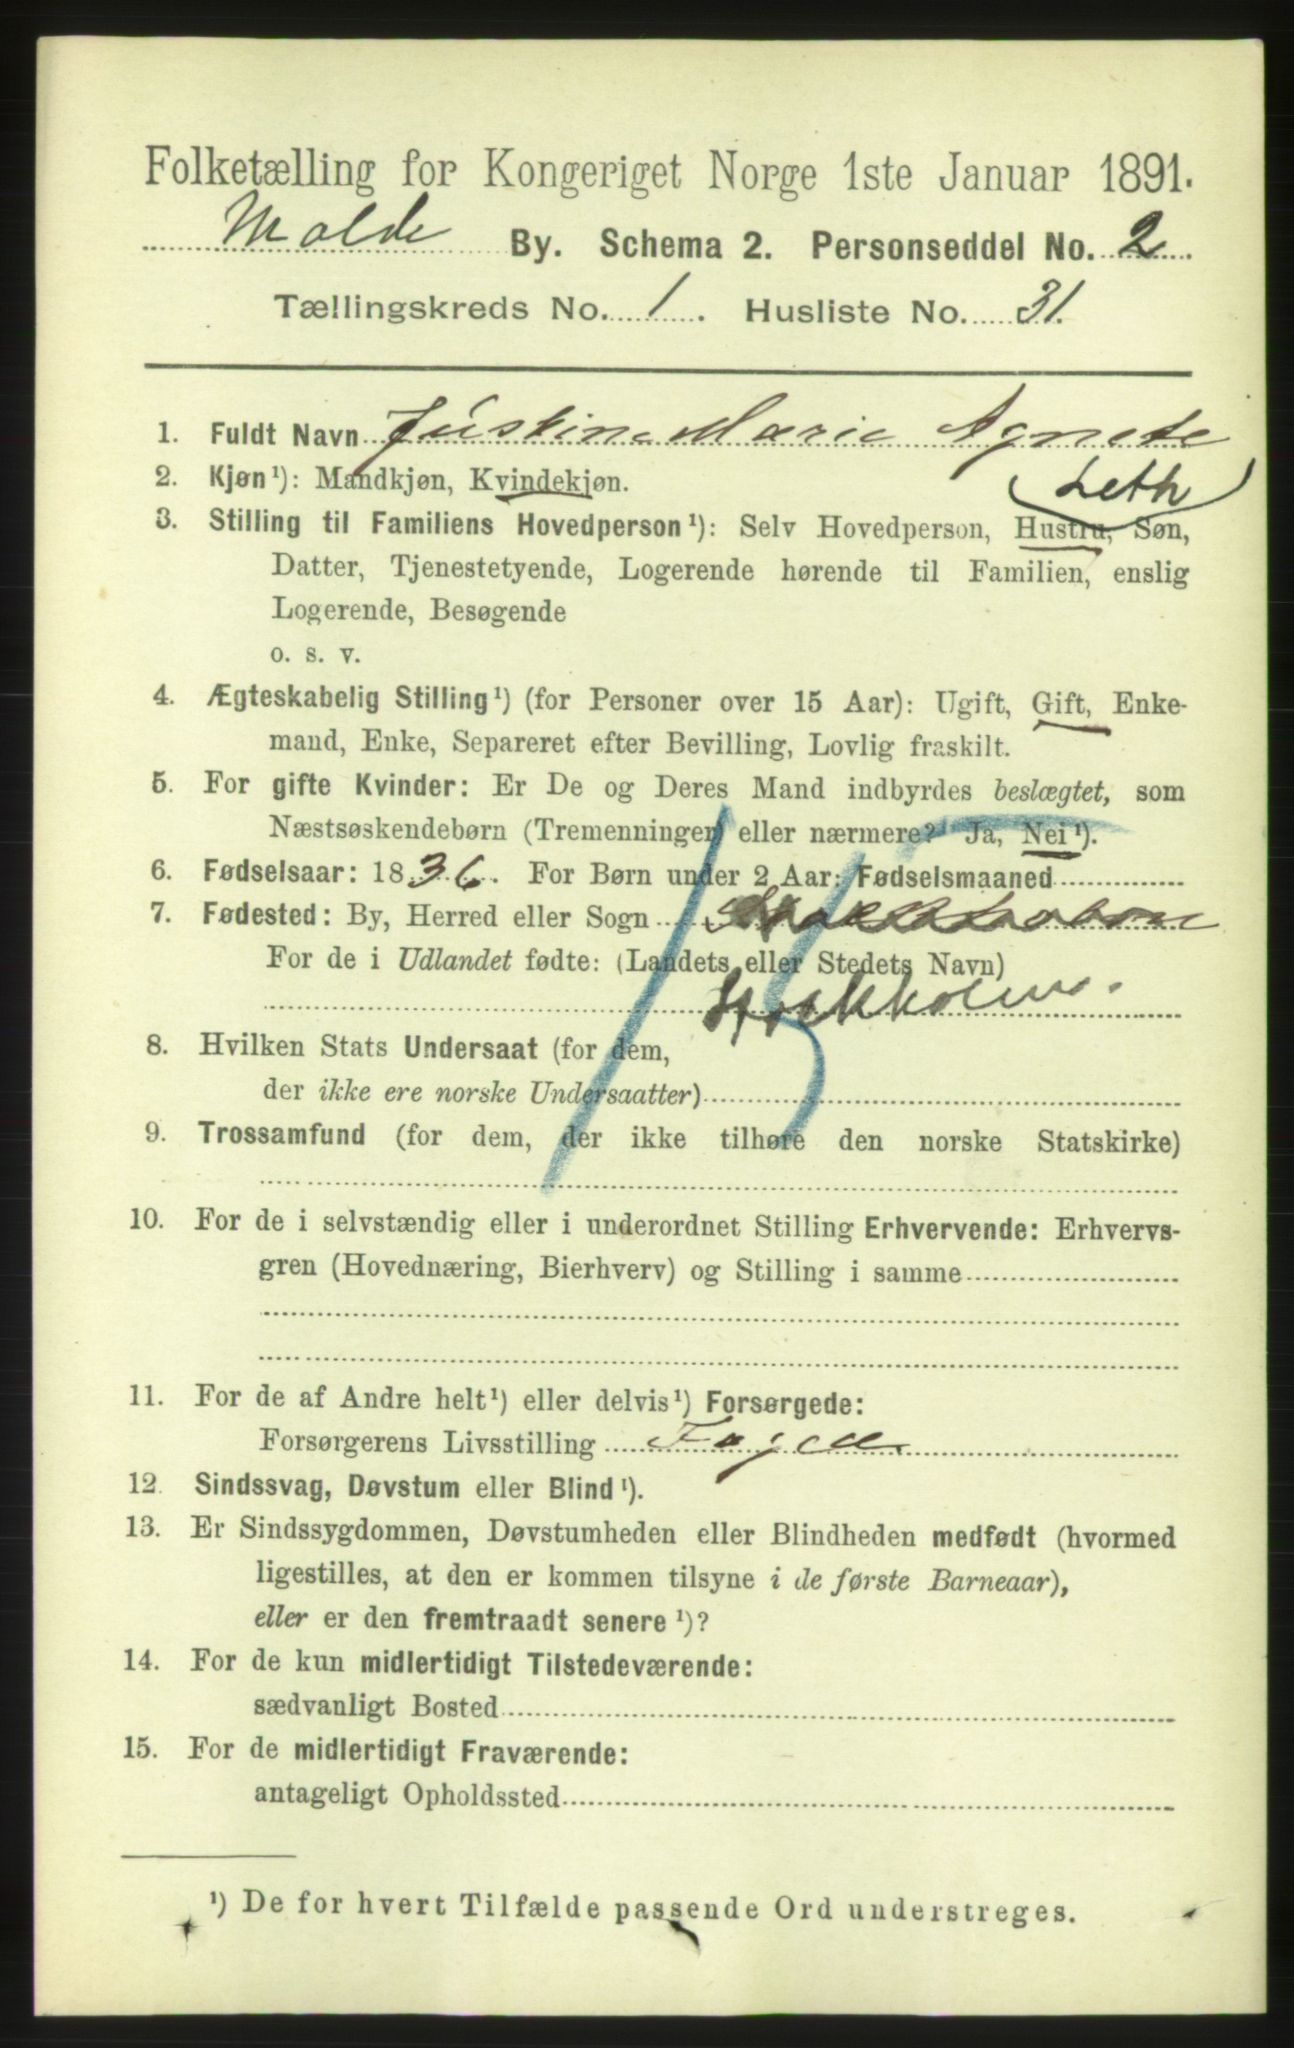 Folketælling for Kongeriget Norge 1ste Januar 1891.
Molde By. Schema 2. Personseddel No. 2
Tællingskreds No. 1. Husliste No. 31.
1. Fuldt Navn Justine Marie Agnete
(Leth)
2. Kjøn¹): Mandkjøn, Kvindekjøn.
3. Stilling til Familiens Hovedperson¹): Selv Hovedperson, Hustru, Søn,
Datter, Tjenestetyende, Logerende hørende til Familien, enslig
Logerende, Besøgende
o. s. v.
4. Ægteskabelig Stilling¹) (for Personer over 15 Aar): Ugift, Gift, Enke-
mand, Enke, Separeret efter Bevilling, Lovlig fraskilt.
5. For gifte Kvinder: Er De og Deres Mand indbyrdes beslægtet, som
Næstsøskendebørn (Tremenninger) eller nærmere? Ja, Nei¹).
6. Fødselsaar: 1836. For Børn under 2 Aar: Fødselsmaaned
7. Fødested: By, Herred eller Sogn
For de i Udlandet fødte: (Landets eller Stedets Navn)
Stockholm.
15
8. Hvilken Stats Undersaat (for dem,
der ikke ere norske Undersaatter)
9. Trossamfund (for dem, der ikke tilhøre den norske Statskirke)
10. For de i selvstændig eller i underordnet Stilling Erhvervende: Erhvervs-
gren (Hovednæring, Bierhverv) og Stilling i samme
11. For de af Andre helt¹) eller delvis¹) Forsørgede:
Forsørgerens Livsstilling
12. Sindssvag, Døvstum eller Blind¹).
13. Er Sindssygdommen, Døvstumheden eller Blindheden medfødt (hvormed
ligestilles, at den er kommen tilsyne i de første Barneaar),
eller er den fremtraadt senere¹)?
14. For de kun midlertidigt Tilstedeværende:
sædvanligt Bosted
15. For de midlertidigt Fraværende:
antageligt Opholdssted
¹) De for hvert Tilfælde passende Ord understreges.